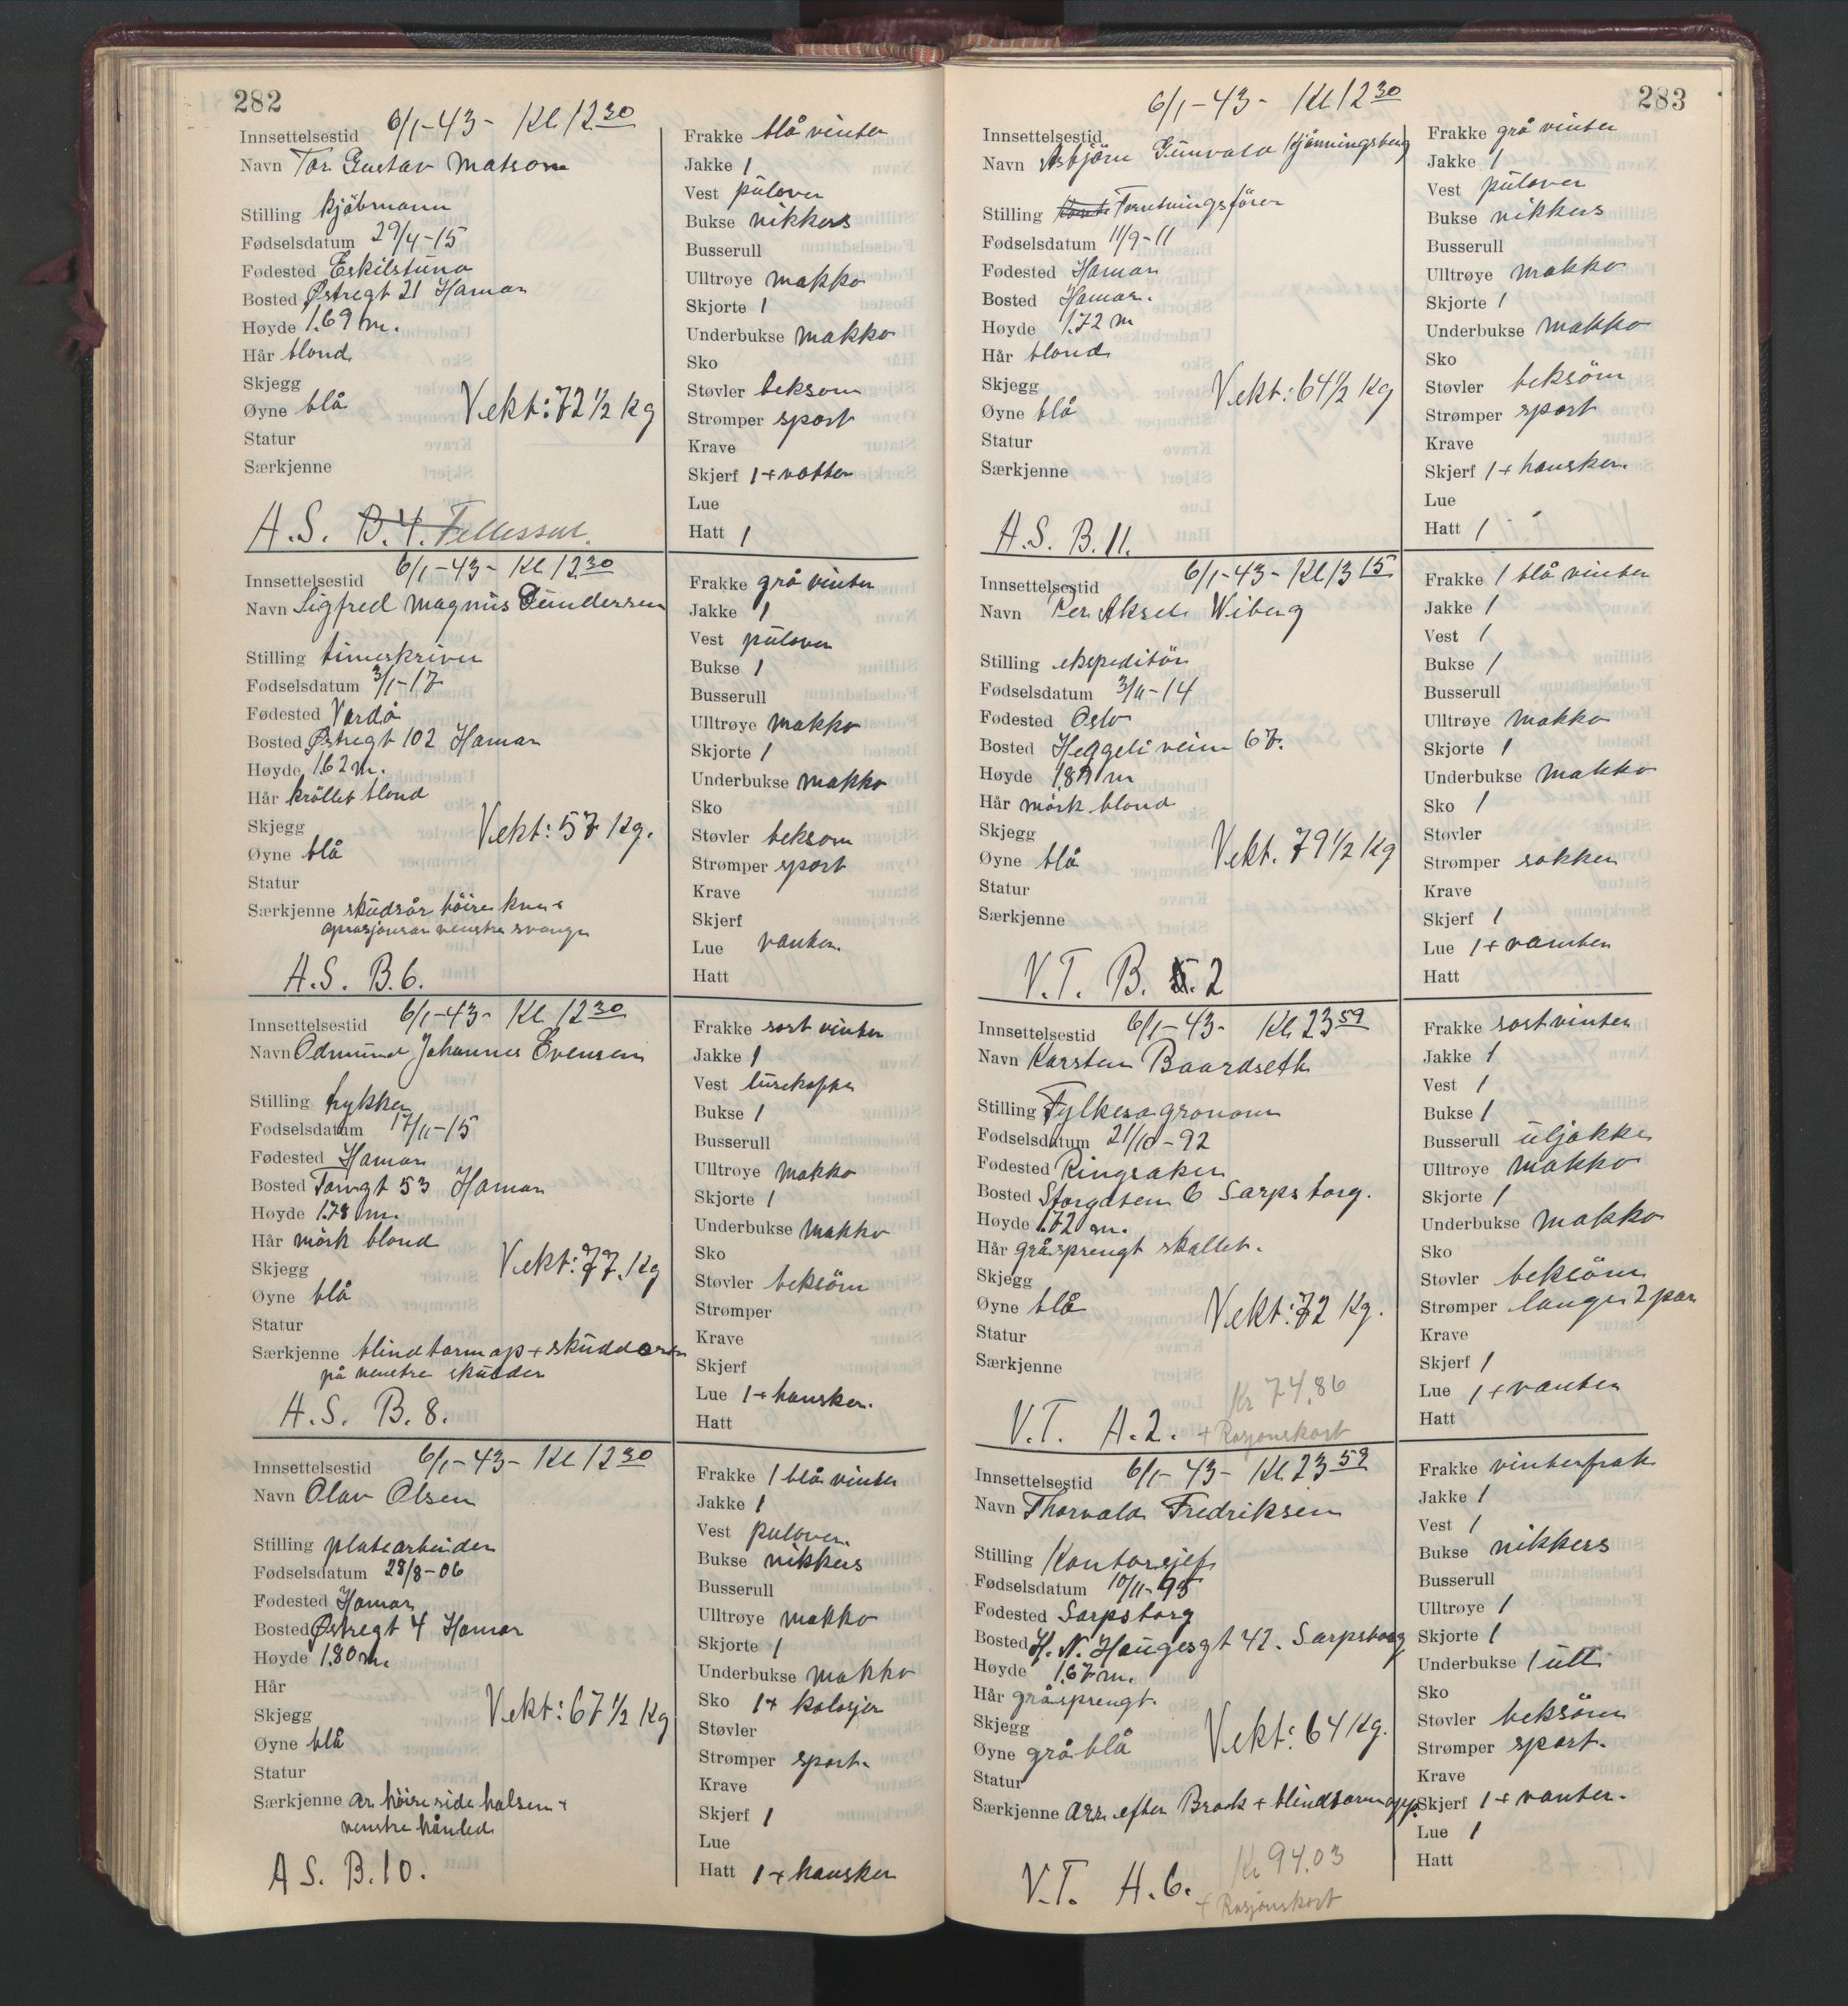 282
Innsettelsestid 6/1-43- Kl 12 30
Navn Tor Gustav Matson
Stilling kjøbmann
Fødselsdatum 29/4-15
Fødested Eskilstuna
Bosted Østregt 21 Hamar
Høyde 1.69 m.
Hår blond
Skjegg
Øyne blå Vekt: 72 1/2 kg
Statur
Særkjenne
A.S. B.4. Fellessal.
Frakke blå vinter
Jakke 1
Vest pulover
Bukse nikkers
Busserull
Ulltrøye makko
Skjorte 1
Underbukse makko
Sko
Støvler beksøm
Strømper sport
Krave
Skjerf 1 + votter
Lue
Hatt 1
Innsettelsestid 6/1-43- Kl 12 30
Navn Sigfred Magnus Gundersen
Stilling timeskriver
Fødselsdatum 3/1-17
Fødested Vardø
Bosted Østregt 102 Hamar
Høyde 1.62 m.
Hår krøllet blond
Skjegg
Øyne blå Vekt: 57 Kg.
Statur
Særkjenne skudsår høire kne +
oprasjonsar venstre svange
A.S. B.6.
Frakke grå vinter
Jakke 1
Vest pulover
Bukse 1
Busserull
Ulltrøye makko
Skjorte 1
Underbukse makko
Sko
Støvler beksøm
Strømper sport
Krave
Skjerf
Lue vanter.
Hatt
Innsettelsestid 6/1-43- Kl 12 30
Navn Odmund Johannes Evensen
Stilling trykker
Fødselsdatum 17/11-15
Fødested Hamar
Bosted Torvgt 53 Hamar
Høyde 1.78 m.
Hår mørk blond
Skjegg
Øyne blå Vekt: 77. Kg
Statur
Særkjenne blindtarmop + skuddarr
på venstre skulder
A.S. B.8.
Frakke sort vinter
Jakke 1
Vest lusekofte
Bukse 1
Busserull
Ulltrøye makko
Skjorte 1
Underbukse makko
Sko
Støvler beksöm
Strømper
Krave
Skjerf
Lue 1 + hansker.
Hatt
Innsettelsestid 6/1-43- Kl 12 30
Navn Olav Olsen
Stilling platearbeider
Fødselsdatum 28/8-06
Fødested Hamar
Bosted Østregt 4 Hamar
Høyde 1.80 m.
Hår
Skjegg Vekt: 67 1/2 Kg
Øyne blå
Statur
Særkjenne ar høire side halsen +
venstre håndled
A S. B.10.
Frakke 1 blå vinter
Jakke 1
Vest pulover.
Bukse nikkers
Busserull
Ulltrøye makko
Skjorte 1
Underbukse makko
Sko 1 + kalosjer
Støvler
Strømper sport.
Krave
Skjerf 1
Lue
Hatt 1 + hansker
283
Innsettelsestid 6/1-43- Kl 12 30
Navn Asbjörn Gunvald Kjönningsberg
Stilling Forretningsförer
Fødselsdatum 11/9-11
Fødested Hamar
Bosted Hamar.
Høyde 1.72 m
Hår blond
Skjegg Vekt: 64 1/2 Kg
Øyne blå
Statur
Særkjenne
A.S. B.11.
Frakke grå vinter
Jakke 1
Vest pulover
Bukse nikkers
Busserull
Ulltrøye makko
Skjorte 1
Underbukse makko
Sko
Støvler beksöm
Strømper sport
Krave
Skjerf 1 + hansker.
Lue
Hatt 1
Innsettelsestid 6/1-43- Kl 13 15
Navn Per Aksel Wiberg
Stilling ekspeditör
Fødselsdatum 3/11-14
Fødested Oslo
Bosted Heggeliveien 67.
Høyde m
Hår mörk blond
Skjegg
Øyne blå Vekt. 79 1/2 Kg
Statur
Særkjenne
V.T. B. 2
Frakke 1 blå vinter
Jakke 1
Vest 1
Bukse 1
Busserull
Ulltrøye makko
Skjorte 1
Underbukse makko
Sko 1
Støvler
Strømper sokker
Krave
Skjerf 1
Lue 1 + vanter
Hatt
Innsettelsestid 6/1-43- Kl 23 59
Navn Karsten Baardseth
Stilling Fylkesagronom
Fødselsdatum 21/10-92
Fødested Ringsaker
Bosted Storgaten 6 Sarpsborg.
Høyde 1.72 m.
Hår gråsprengt skallet.
Skjegg
Øyne blå Vekt: 72 Kg.
Statur
Særkjenne
Kr 74,86
V.T. A.2. + Rasjonskort
Frakke sort vinter
Jakke 1
Vest 1
Bukse 1
Busserull uljakke
Ulltrøye makko
Skjorte 1
Underbukse makko
Sko
Støvler beksöm
Strømper lange 2 par
Krave
Skjerf 1
Lue 1 + vanter
Hatt
Innsettelsestid 6/1-43- Kl. 23 59
Navn Thorvald Fredriksen
Stilling Kontorsjef
Fødselsdatum 10/11-95
Fødested Sarpsborg
Bosted H. N. Haugesgt 42. Sarpsborg
Høyde 1.67 m.
Hår gråsprengt.
Skjegg
Øyne grå blå Vekt: 64 Kg.
Statur
Særkjenne Arr efter Brock + blindtarm op.
Kr 94.03
V.T. A.6. + Rasjonskort
Frakke vinterfrak
Jakke 1
Vest 1
Bukse nikkers
Busserull
Ulltrøye 1
Skjorte 1
Underbukse 1 ull
Sko
Støvler beksöm
Strømper sport.
Krave
Skjerf 1 + vanter.
Lue 1
Hatt